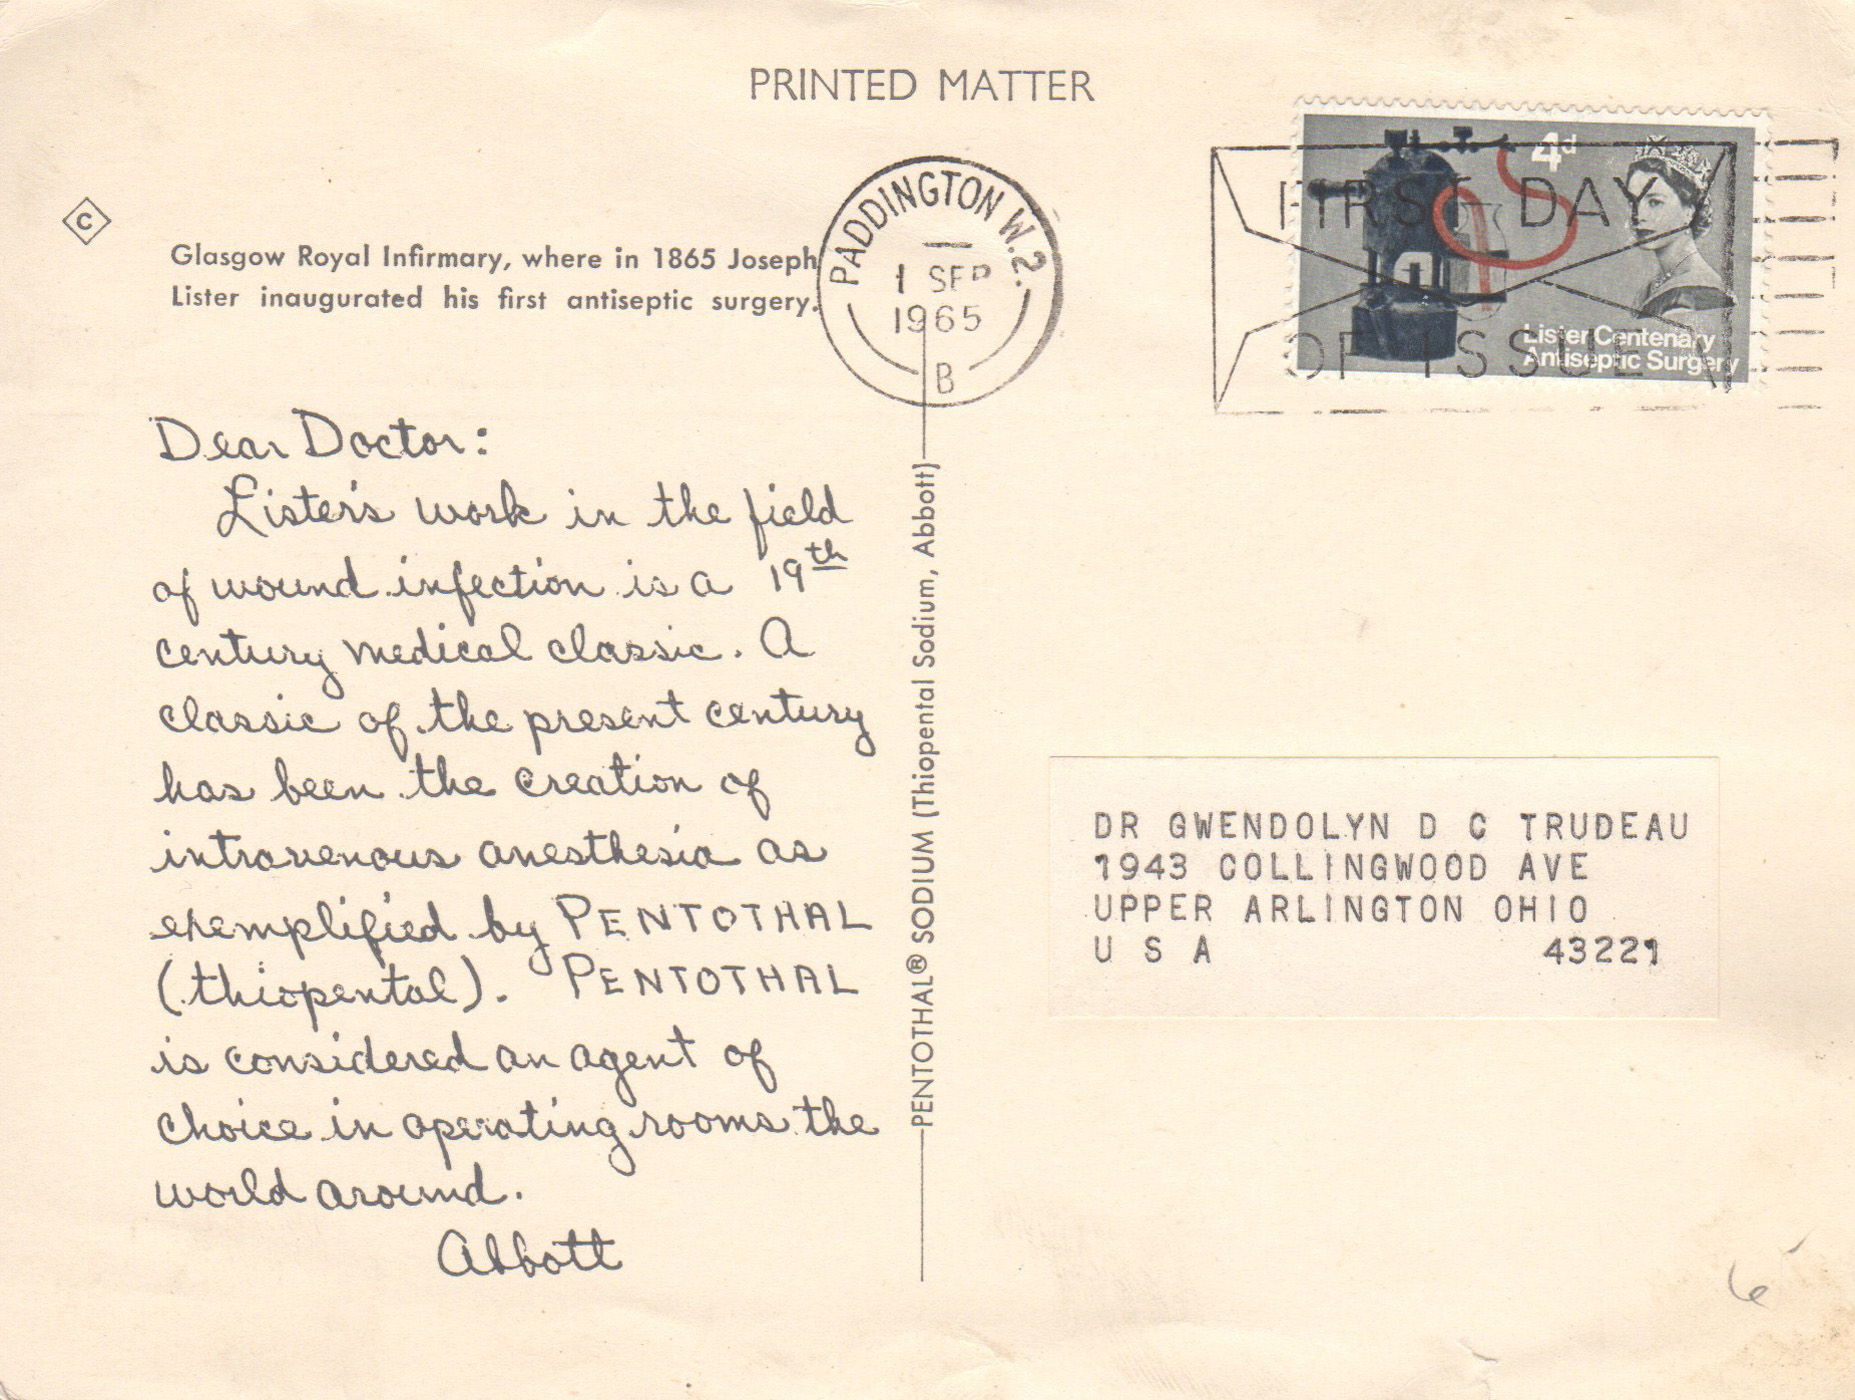 PRINTED MATTER
C
Glasgow Royal Infirmary, where in 1865 Joseph
Lister inaugurated his first antiseptic surgery.
PADDINGTON W.2.
1 SEP
1965
B
4d
FIRST DAY
OF ISSUE
Lister Centenary
Antiseptic Surgery
Dear Doctor:
Lister's work in the field
of wound infection is a 19th
century medical classic. A
classic of the present century
has been the creation of
intravenous anesthesia as
exemplified by PENTOTHAL
(thiopental). PENTOTHAL
is considered an agent of
choice in operating rooms the
world around.
Abbott
PENTOTHAL® SODIUM (Thiopental Sodium, Abbott)
DR GWENDOLYN D C TRUDEAU
1943 COLLINGWOOD AVE
UPPER ARLINGTON OHIO
U S A 43221
6